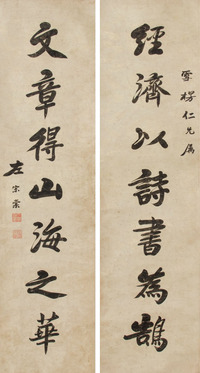 雪楞仁兄属
經濟以詩書為鵠
文章得山海之華
左宗棠